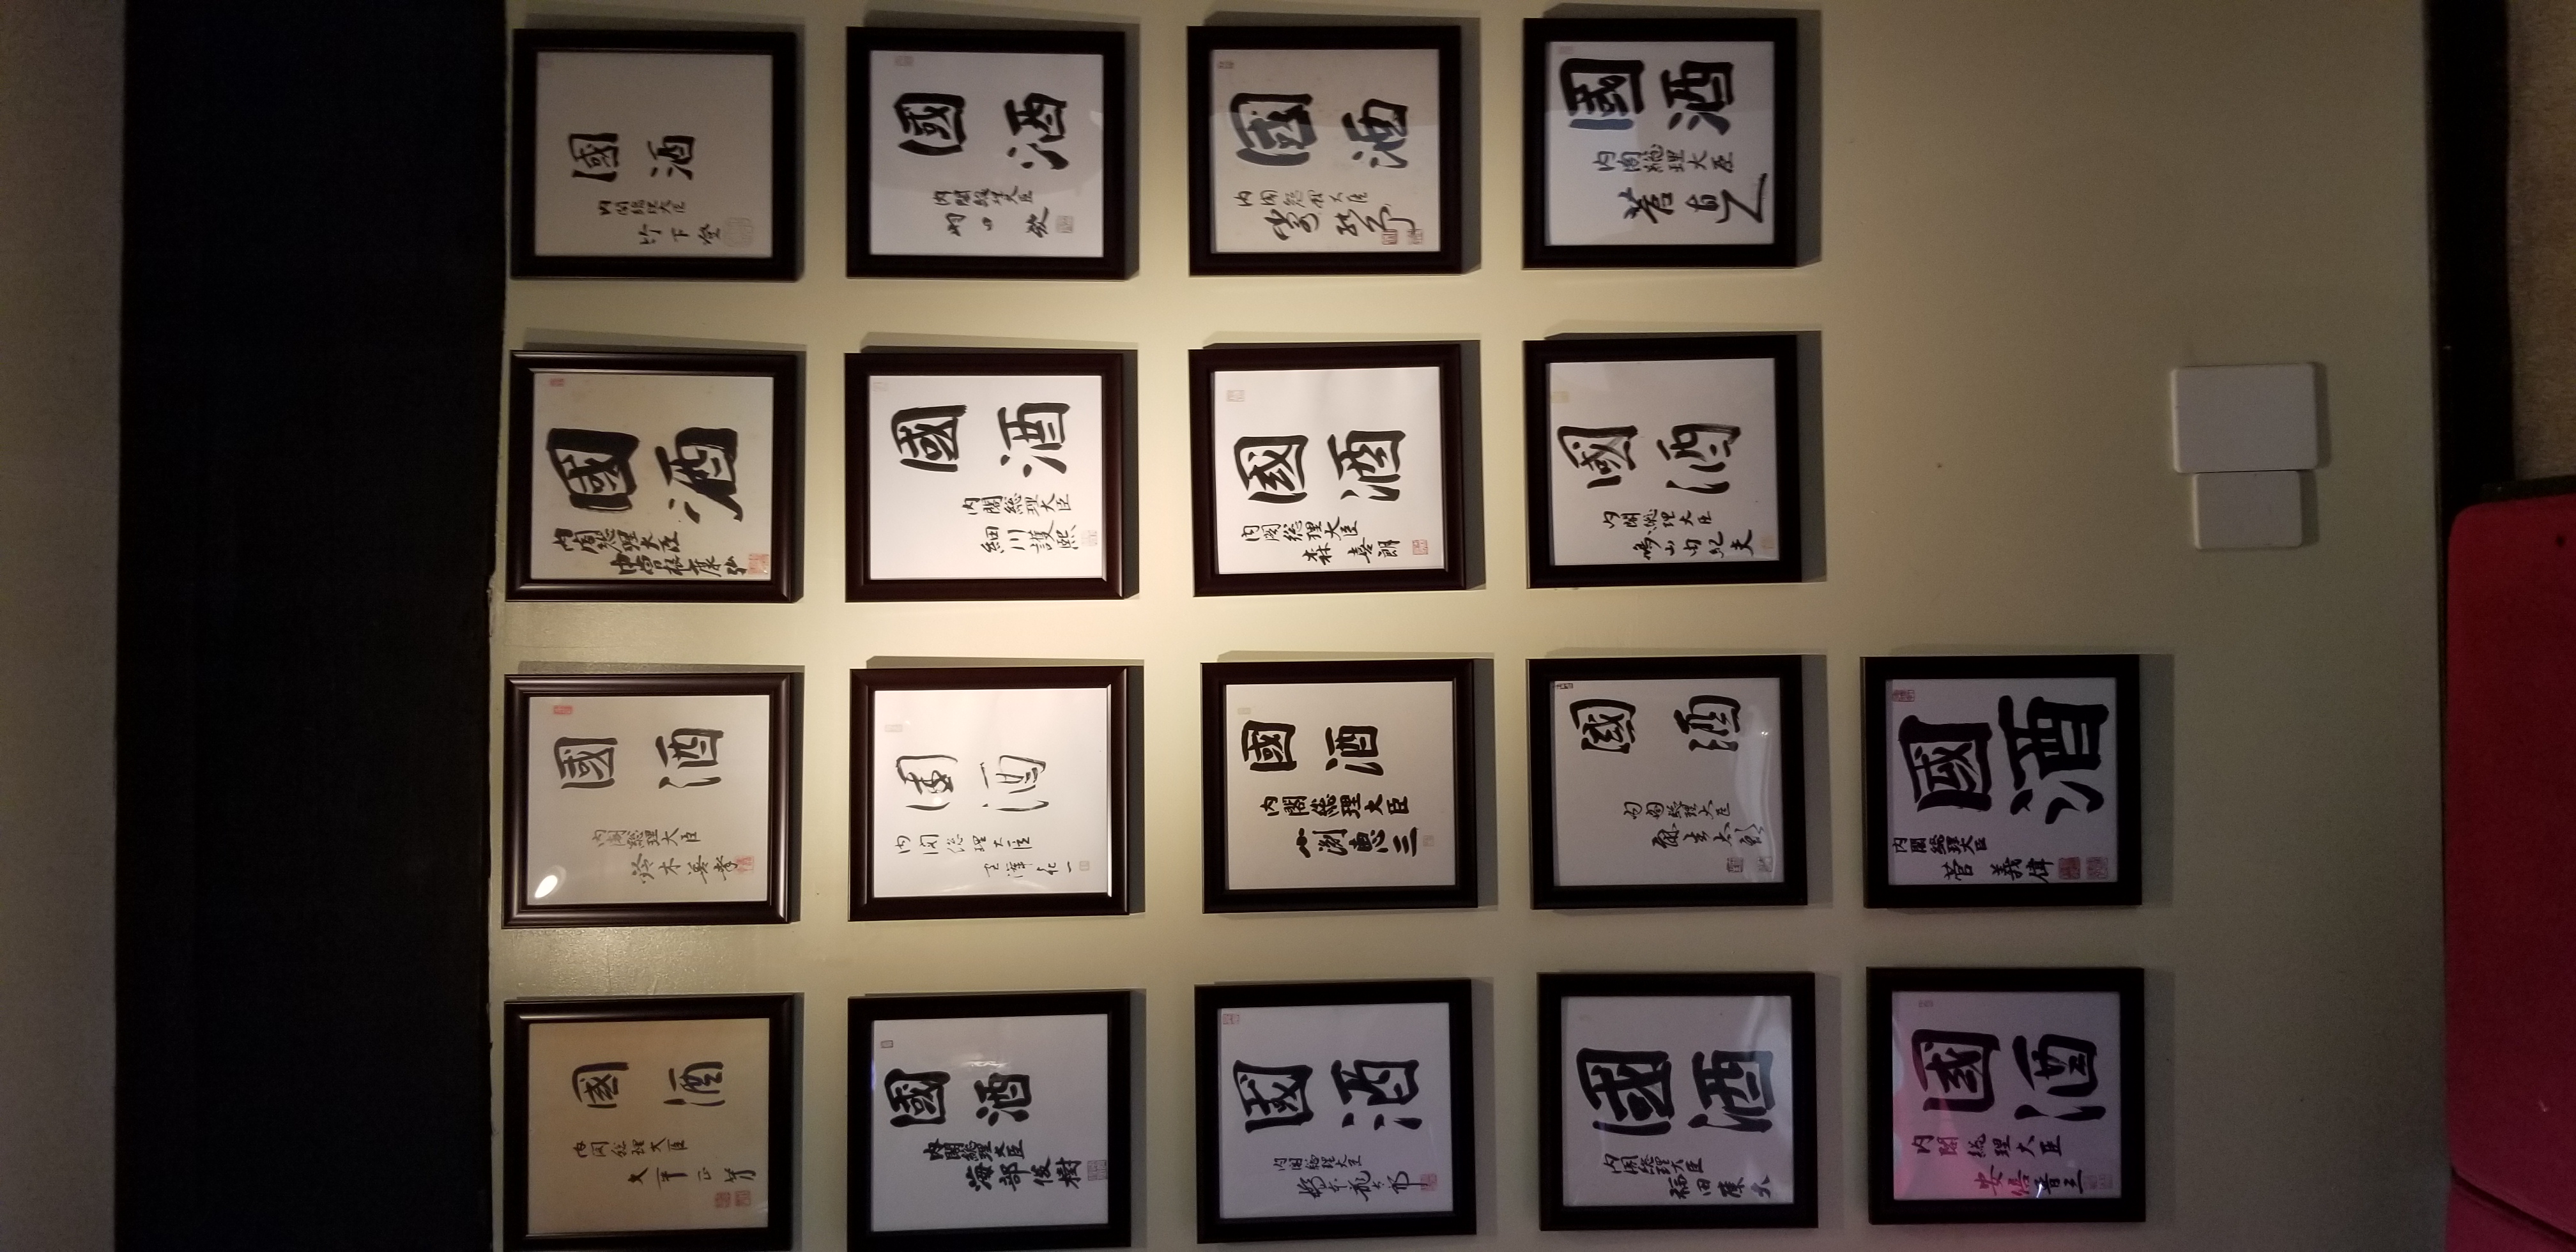 國酒
内閣総理大臣
大平正芳
國酒
内閣総理大臣
鈴木善幸
國酒
内閣総理大臣
中曽根康弘
國酒
内閣総理大臣
竹下登
國酒
内閣総理大臣
海部俊樹
國酒
内閣総理大臣
宮澤喜一
國酒
内閣総理大臣
細川護熙
國酒
内閣総理大臣
羽田孜
國酒
内閣総理大臣
橋本龍太郎
國酒
内閣総理大臣
小渕恵三
國酒
内閣総理大臣
森喜朗
國酒
内閣総理大臣
國酒
内閣総理大臣
福田康夫
國酒
内閣総理大臣
麻生太郎
國酒
内閣総理大臣
鳩山由紀夫
國酒
内閣総理大臣
菅直人
國酒
内閣総理大臣
安倍晋三
國酒
内閣総理大臣
菅義偉